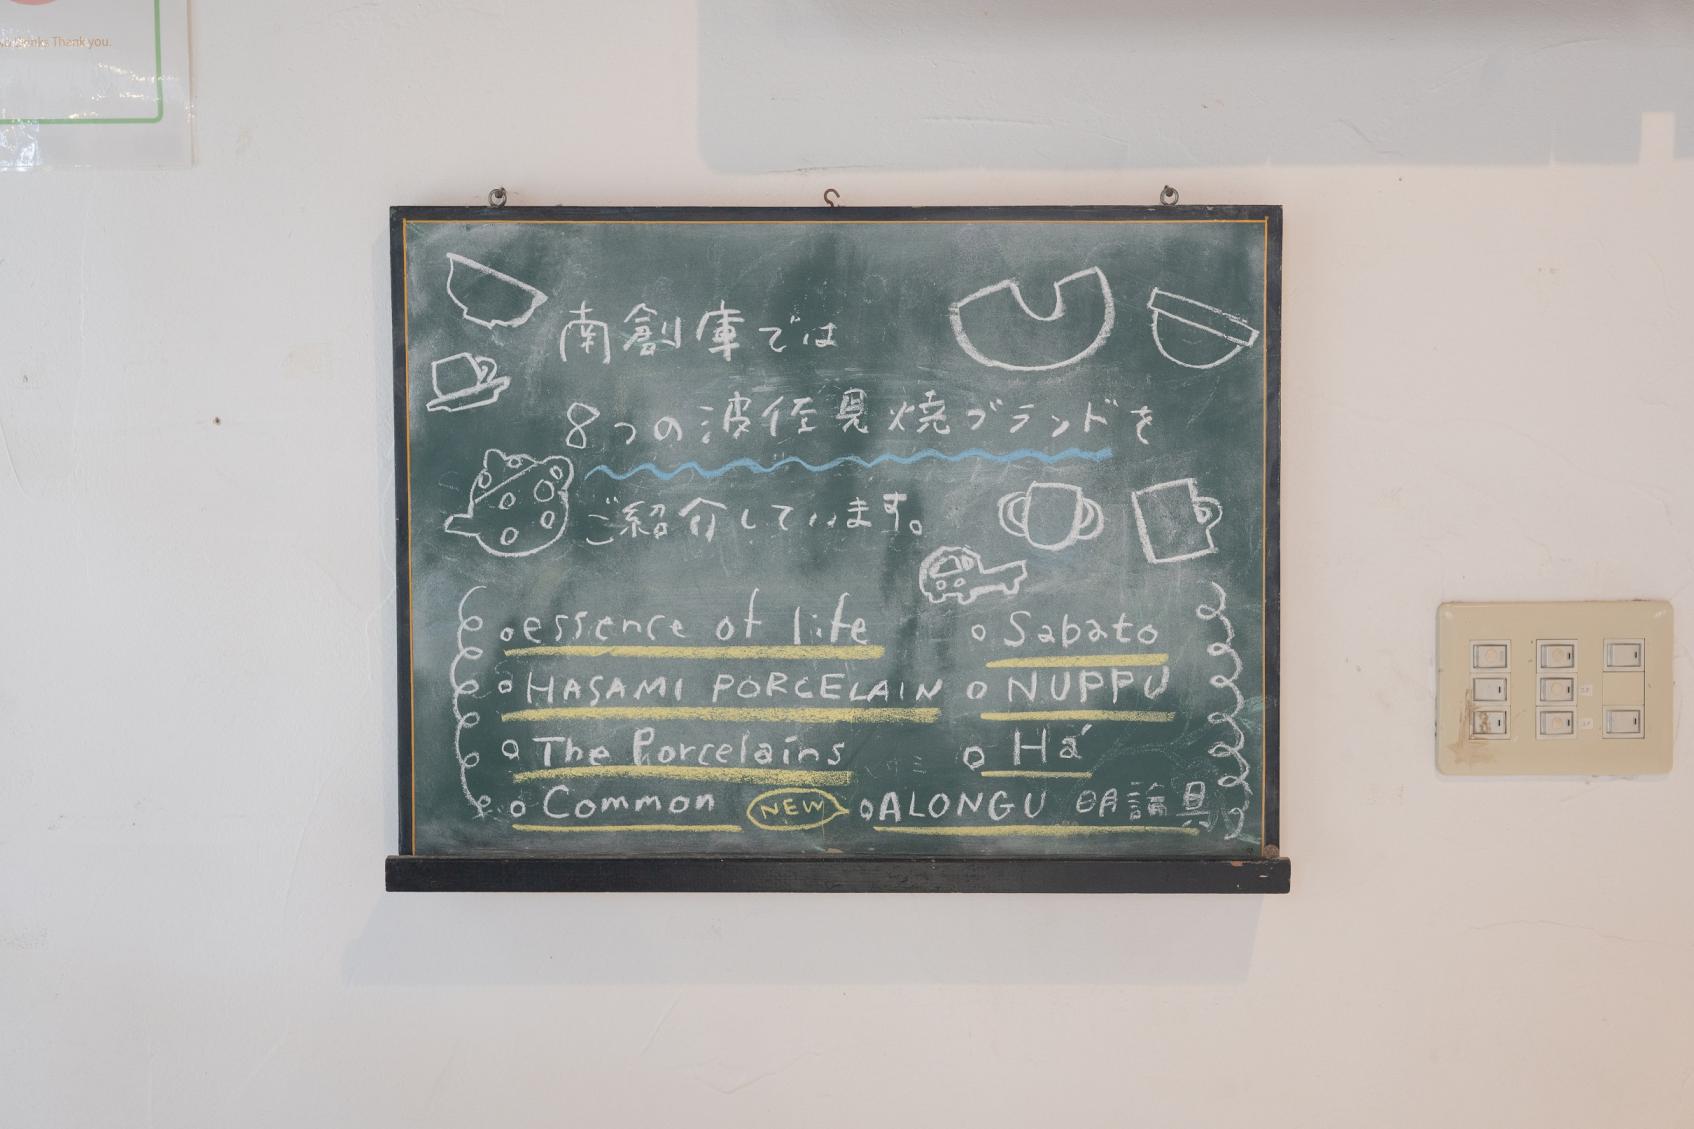 Thank you.
南創庫では
8つの波佐見焼ブランドを
ご紹介しています。
essence of life
Sabato
HASAMI PORCELAIN
NUPPU
The Porcelains
Há
Common
NEW
ALONGU 明論具